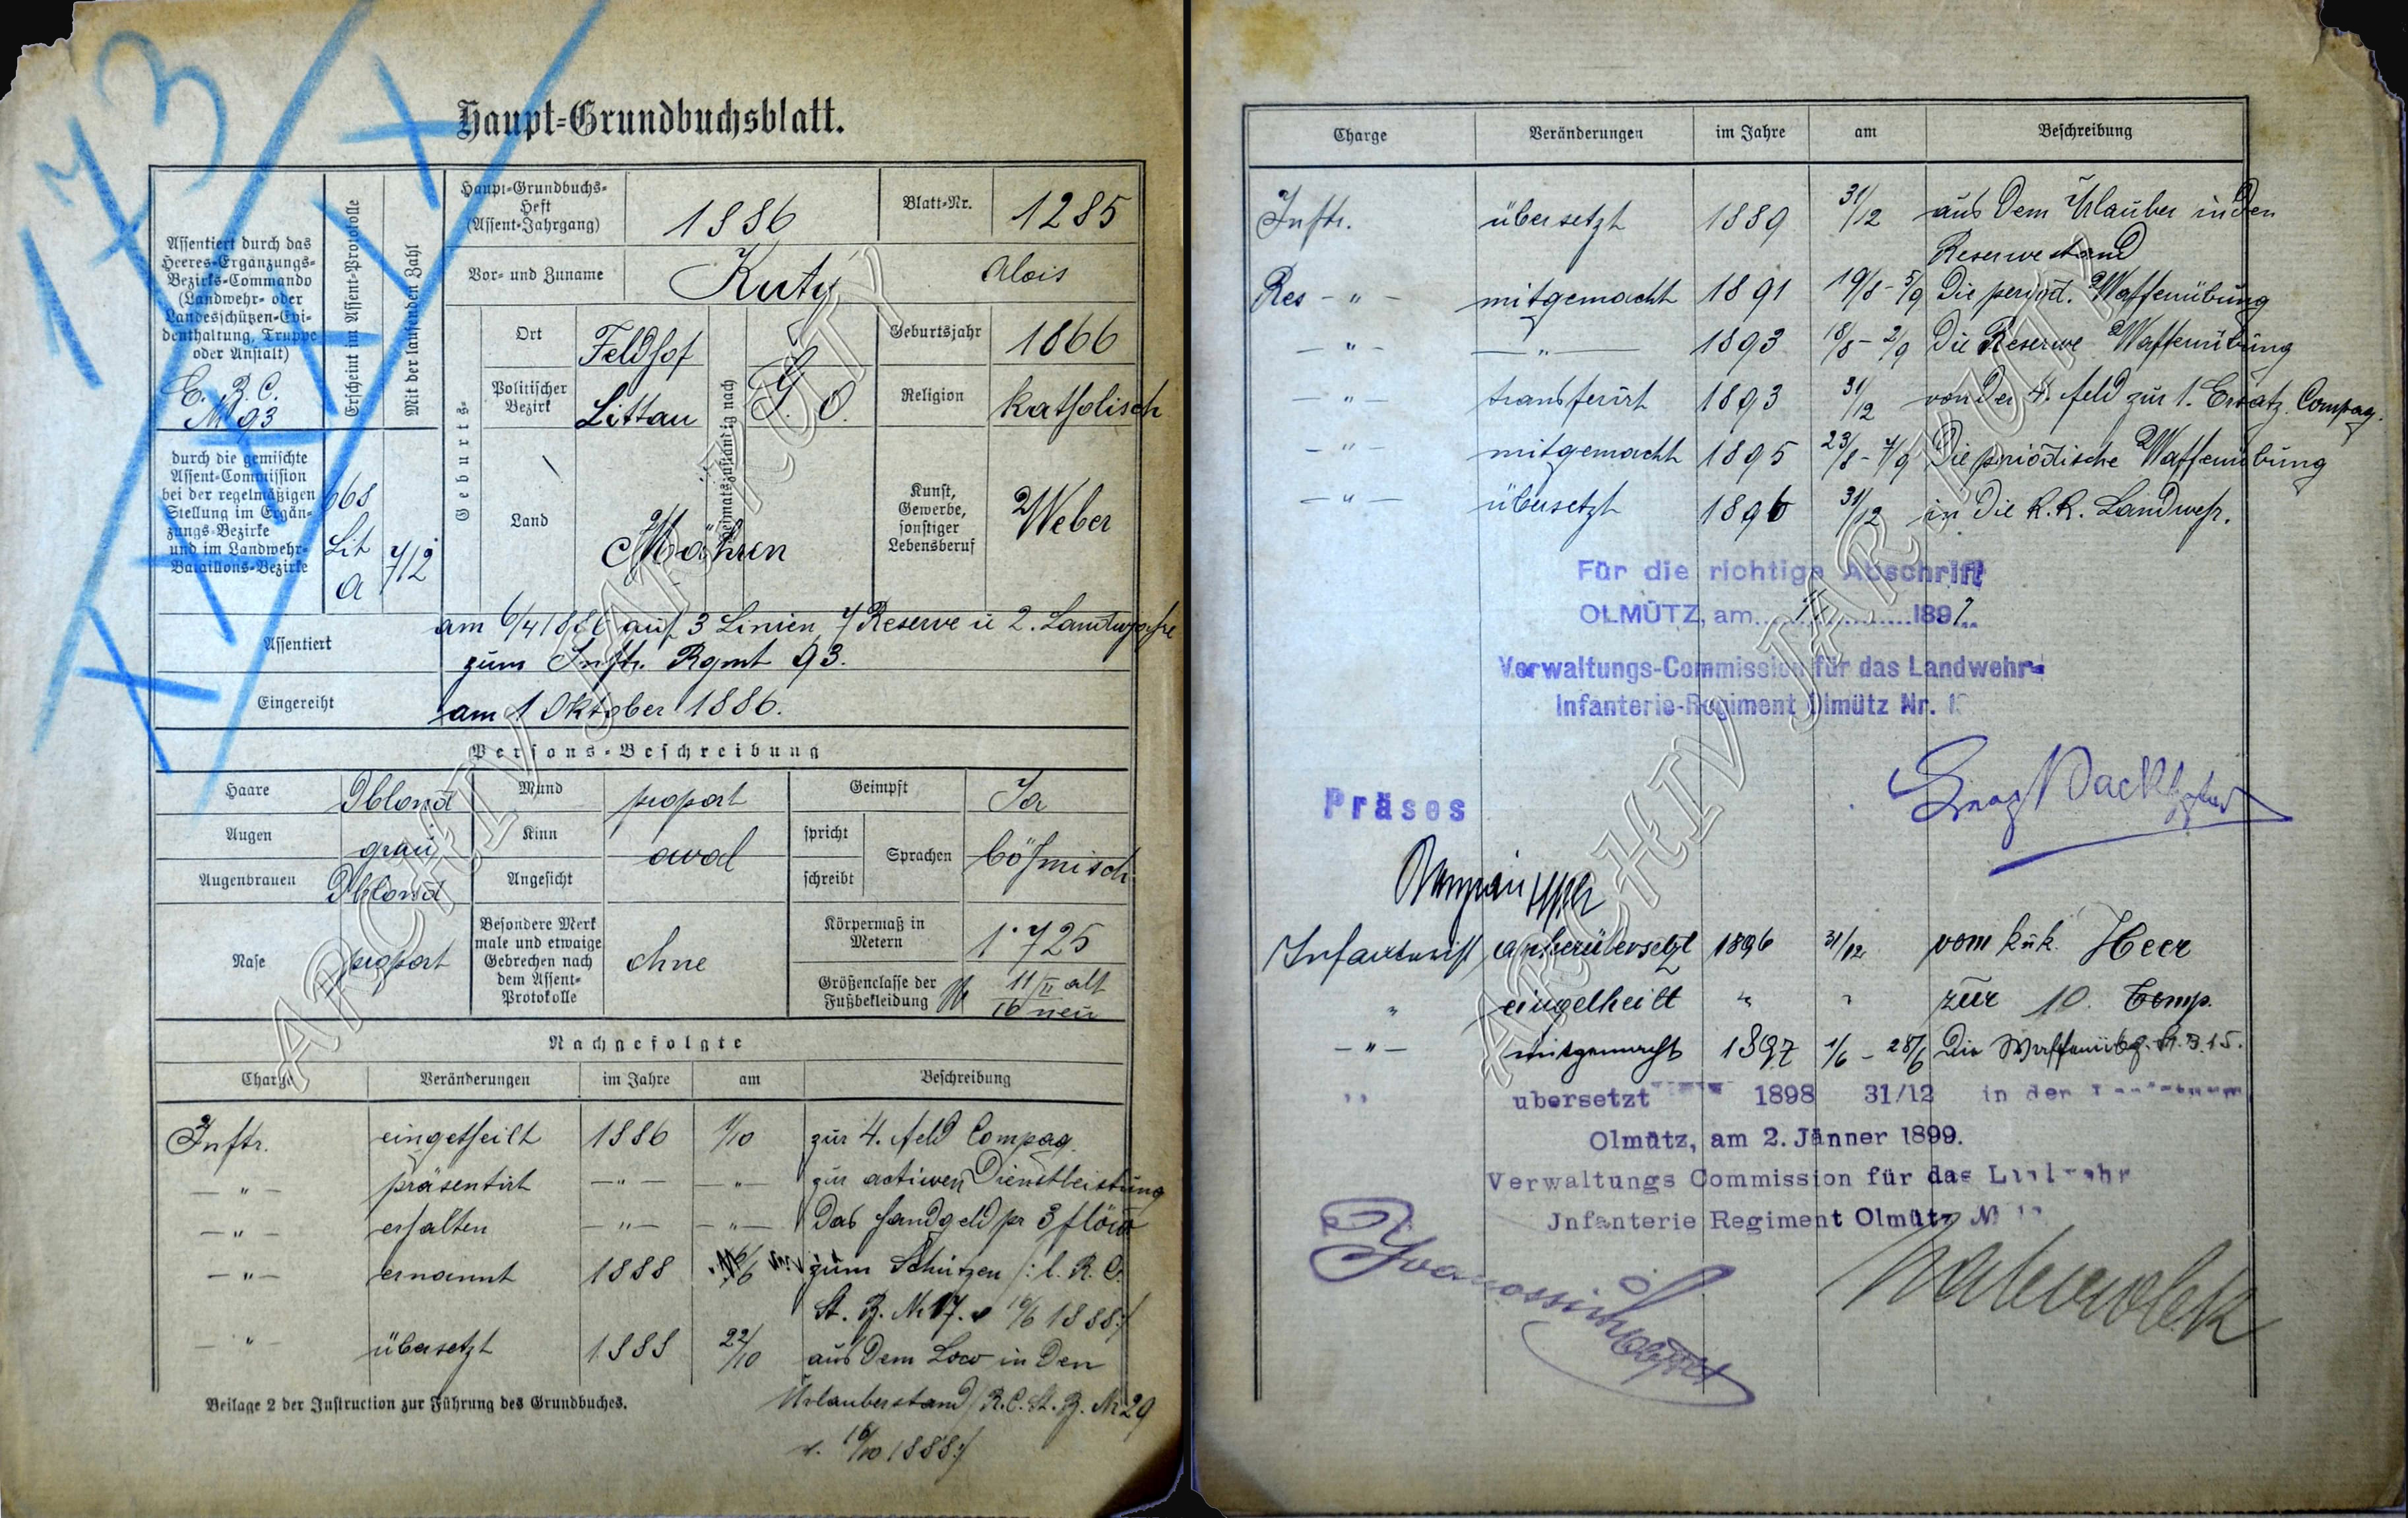 173
Haupt=Grundbuchsblatt.
Assentiert durch das
Heeres=Ergänzungs=
Bezirks=Commando
(Landwehr= oder
Landesschützen=Evi=
denthaltung, Truppe
oder Anstalt)
E. B. C.
№ 93
Erscheint im Assent=Protokolle
Mit der laufenden Zahl
durch die gemischte
Assent=Commission
bei der regelmäßigen
Stellung im Ergän=
zungs=Bezirke
und im Landwehr=
Bataillons=Bezirke
Lit
a
712
Haupt=Grundbuchs=
Heft
(Assent=Jahrgang)
1886
Blatt=Nr.
1285
Vor= und Zuname
Kutý Alois
Geburts=
Ort
Feldhof
Politischer
Bezirk
Littau
Land
Mähren
Heimatszuständig nach
G. O.
Geburtsjahr
1866
Religion
katholisch
Kunst,
Gewerbe,
sonstiger
Lebensberuf
Weber
Assentiert
am 6/4 1886 auf 3 Linien 7 Reserve u 2. Landwjahre
zum Inftr. Rgmt 93.
Eingereiht
am 1 Oktober 1886.
Persons=Beschreibung
Haare
Dblond
Augen
grau
Augenbrauen
Dblond
Nase
proport
Mund
proport
Kinn
oval
Angesicht
Besondere Merk
male und etwaige
Gebrechen nach
dem Assent=
Protokolle
ohne
Geimpft
Ja
spricht
schreibt
Sprachen
böhmisch
Körpermaß in
Metern
1·725
Größenclasse der
Fußbekleidung
№
11/II alt
16 neu
Nachgefolgte
Charge Veränderungen im Jahre am Beschreibung
Inftr. eingetheilt 1886 1/10 zur 4. Feld Compag.
— " — präsentirt — " — — " — zur activen Dienstleistung
— " — erhalten — " — — " — Das Handgeld pr 3 fl ö w
— " — ernannt 1888 zum Schützen /: l. R. C.
St. B. № 17. v 16/6 1888 :/
— " — übersetzt 1888 22/10 aus dem Loco in den
Urlauberstand / R. C. St. B. № 29
v. 16/10 1888 :/
Beilage 2 der Instruction zur Führung des Grundbuches.
Charge Veränderungen im Jahre am Beschreibung
Inftr. übersetzt 1889 31/12 aus dem Urlauber in den
Reservestand
Res - " - mitgemacht 1891 19/8 - 5/9 Die period. Waffenübung
— " — — " — 1893 18/8 - 2/9 Die Reserve Waffenübung
— " — transferirt 1893 31/12 von der 4. Feld zur 1. Ersatz Compag.
— " — mitgemacht 1895 23/8 - 7/9 Die priodische Waffenübung
— " — übersetzt 1896 31/12 in die k. k. Landwehr.
Für die richtige Abschrift
OLMÜTZ, am 1/1 1897
Verwaltungs-Commission für das Landwehr-
Infanterie-Regiment Olmütz Nr. 1
Präses
Infanterist anherübersetzt 1896 31/12 vom k u k. Heer
" eingetheilt " " zur 10. Comp.
— " — mitgemacht 1897 1/6 - 28/6 Die Waffenübg.
" übersetzt 1898 31/12 in den
Olmütz, am 2. Jänner 1899.
Verwaltungs Commission für das Landwehr
Jnfanterie Regiment Olmütz №
ARCHIV JAR. KUTÝ
ARCHIV JAR. KUTÝ